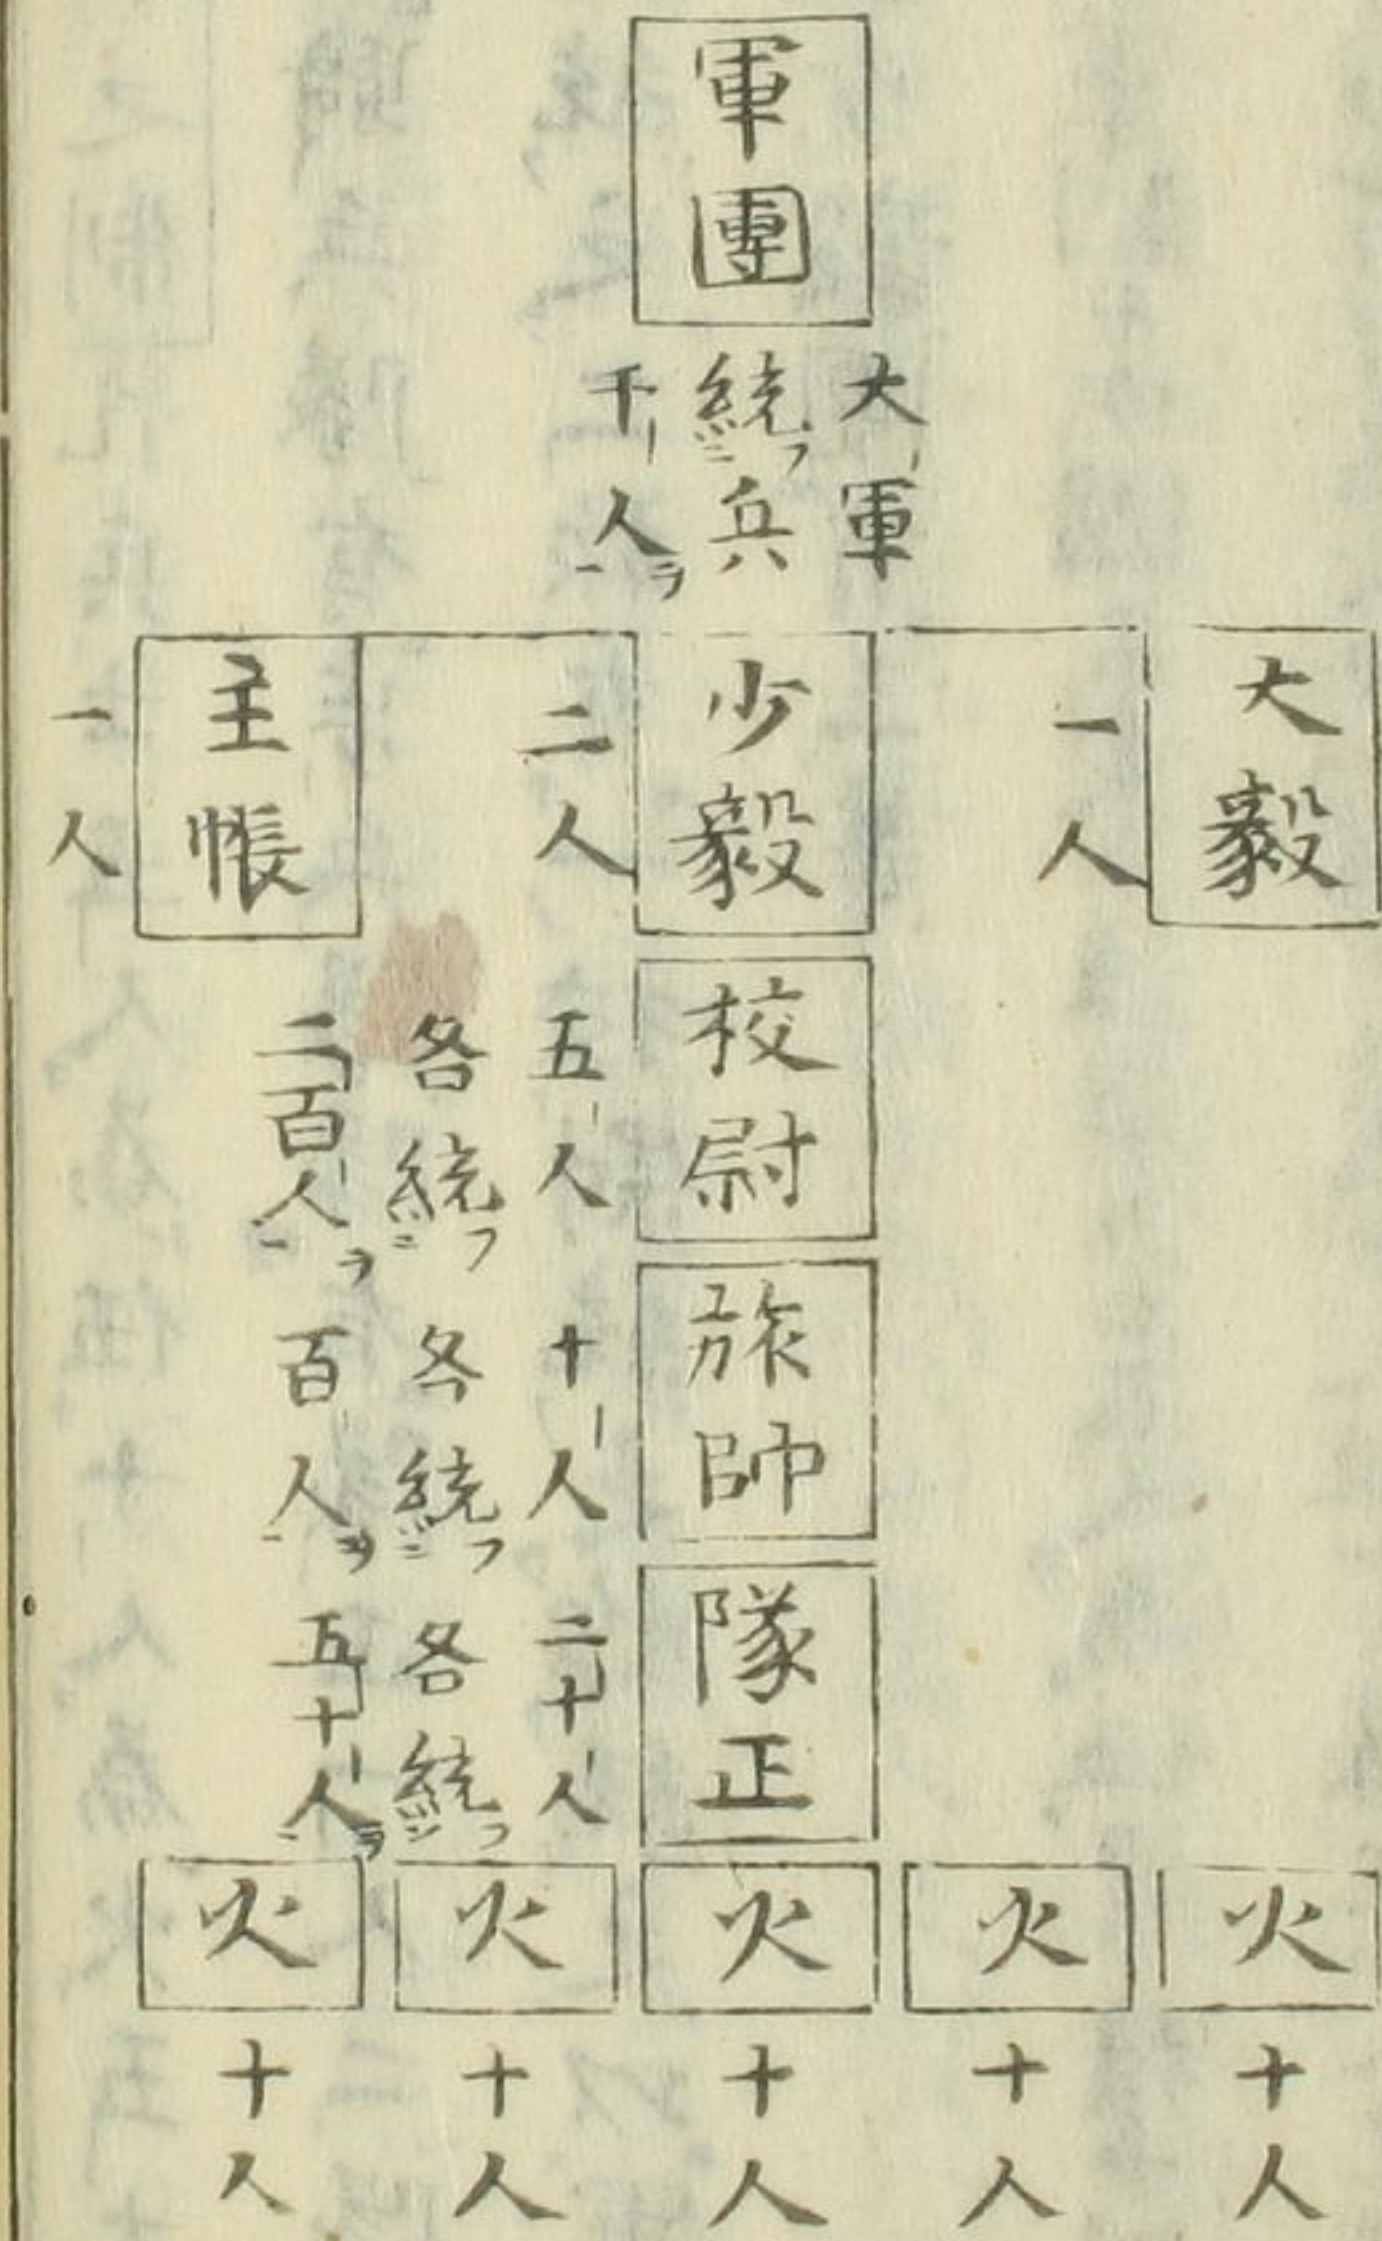 軍團
大軍
統フ兵
千人ヲ
大毅
一人
少毅
二人
主帳
一人
校尉
五人
各統フ
二百人ヲ
旅帥
十人
各統フ
百人ヲ
隊正
二十人
各統フ
五十人ヲ
火
十人
火
十人
火
十人
火
十人
火
十人